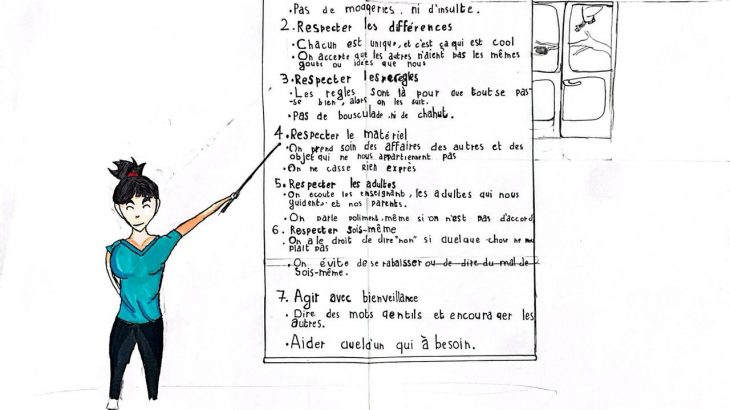 • Pas de moqueries, ni d'insulte.
2. Respecter les différences
• Chacun est unique, et c'est ça qui est cool
• On accepte que les autres n'aient pas les mêmes
goûts ou idées que nous
3. Respecter les règles
• Les regles sont là pour que tout se pas-
-se bien, alors on les suit.
• Pas de bousculade, ni de chahut.
4. Respecter le matériel
• On prend soin des affaires des autres et des
objet qui ne nous appartiement pas
• On ne casse rien exprès
5. Respecter les adultes
• On écoute les enseignant, les adultes qui nous
guident et nos parents.
• On parle poliment, même si on n'est pas d'accord
6. Respecter sois-même
• On a le droit de dire "non" si quelque-chose ne me
plait pas
• On évite de se rabaisser ou de dire du mal de
sois-même.
7. Agir avec bienveillance
• Dire des mots gentils et encourager les
autres.
• Aider quelqu'un qui à besoin.